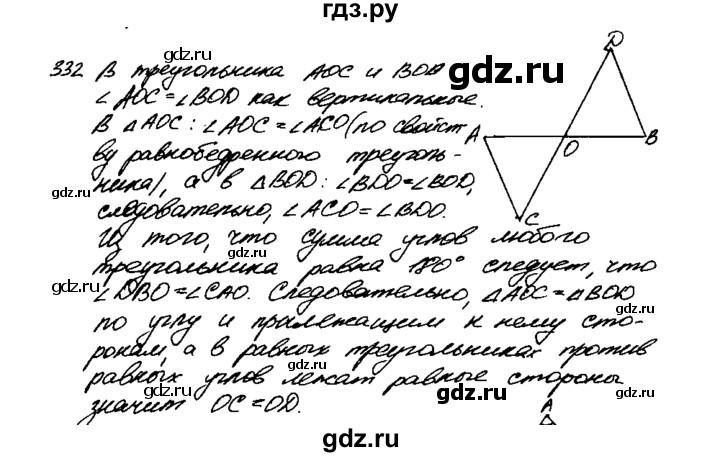 гдз.ру
332 В треугольника АОС и BOD
∠AOC=∠BOD как вертикальные.
В △AOC: ∠AOC=∠ACO (по свойст
ву равнобедренного треуголь-
ника), а в △BOD: ∠BDO=∠BOD,
следовательно, ∠ACO=∠BDO.
Из того, что сумма углов любого
треугольника равна 180° следует, что
∠DBO=∠CAO. Следовательно, △AOC=△BOD
по углу и прилежащим к нему сто-
ронам, а в равных треугольниках против
равных углов лежат равные стороны
значит OC=OD.
D
A
O
B
C
A
gdz.ru
gdz.ru
gdz.ru
gdz.ru
gdz.ru
gdz.ru
gdz.ru
gdz.ru
gdz.ru
gdz.ru
gdz.ru
gdz.ru